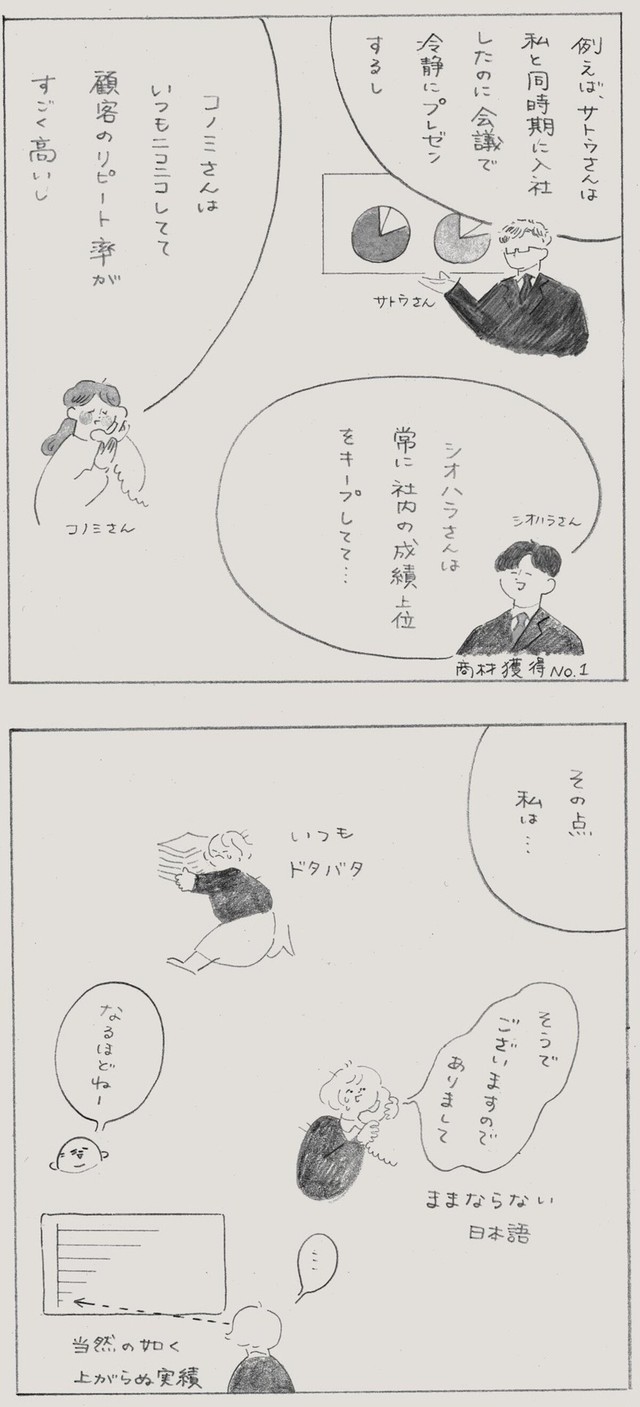 例えば、サトウさんは
私と同時期に入社
したのに会議で
冷静にプレゼン
するし
サトウさん
コノミさんは
いつもニコニコしてて
顧客のリピート率が
すごく高いし
コノミさん
シオハラさんは
常に社内の成績上位
をキープしてて…
シオハラさん
商材獲得No.1
その点
私は…
いつも
ドタバタ
そうで
ございますので
ありまして
ままならない
日本語
なるほどねー
…
当然の如く
上がらぬ実績